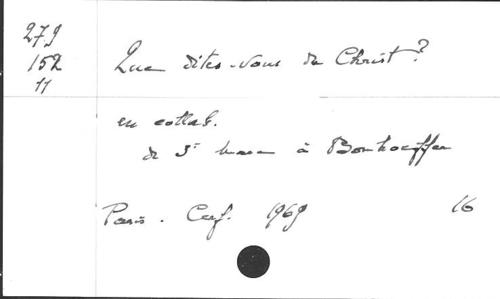 279
152
11
Que dites-vous du Christ?
en collab.
de St Marc à Bonhoeffer
Paris. Cerf. 1969 16